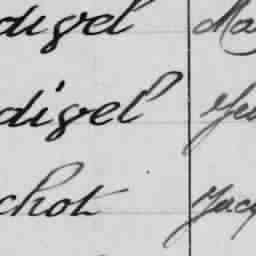 digel Ma
digel Jea
chot Jacq